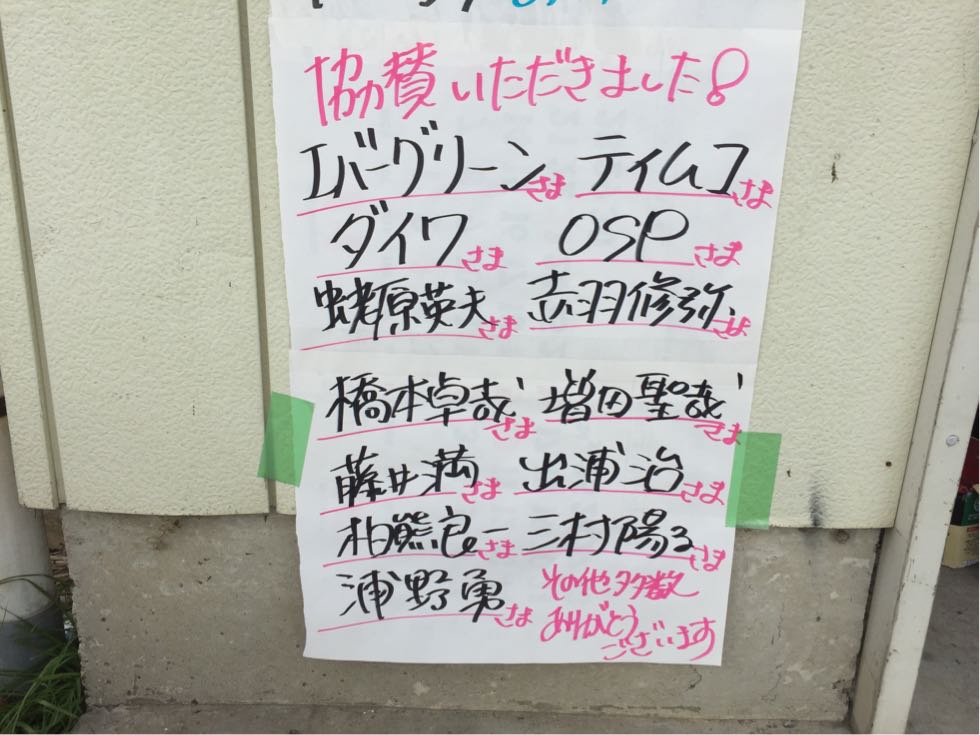 協賛いただきました!
エバーグリーンさま ティムコさま
ダイワさま OSPさま
蛯原英夫さま 赤羽修弥さま
橋本卓哉さま 増田聖哉さま
藤井満さま 出浦治さま
柏熊良一さま 三村陽子さま
浦野勇さま その他多数
ありがとう
ございます